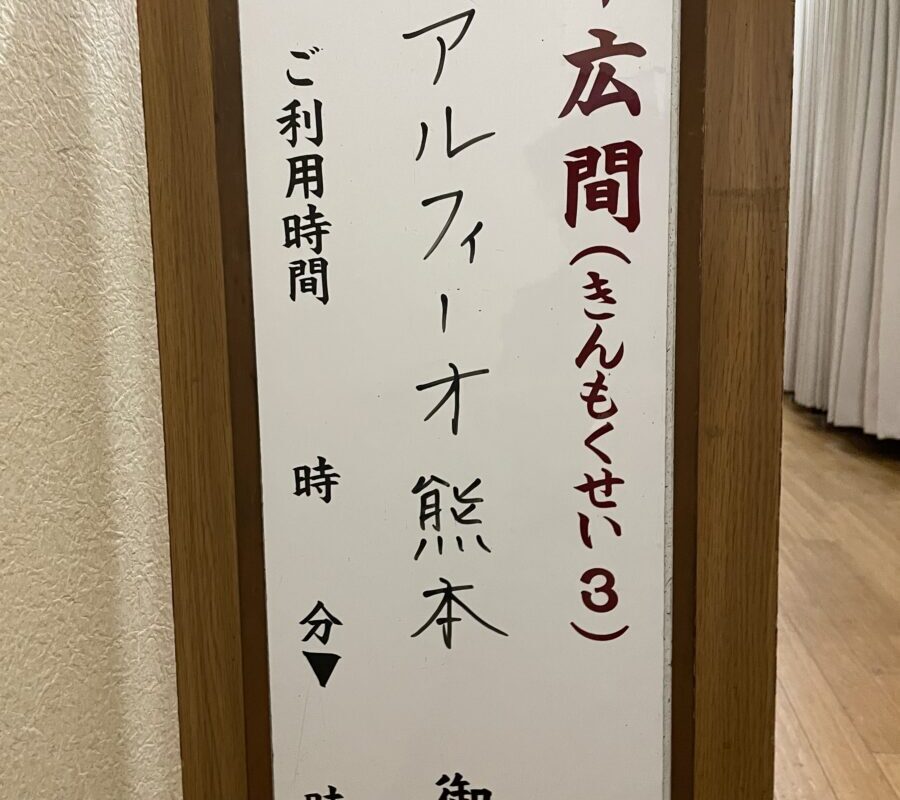 広間(きんもくせい3)
アルフィーオ熊本 御
ご利用時間 時 分▼ 時